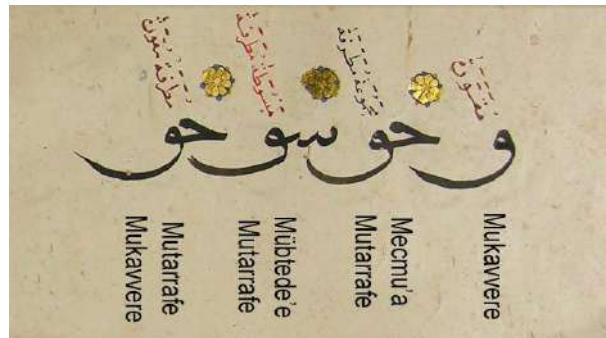 مجموعة مطرفة
و حو سو حو
Mukavvere
Mecmu'a
Mutarrafe
Mübtede'e
Mutarrafe
Mutarrafe
Mukavvere